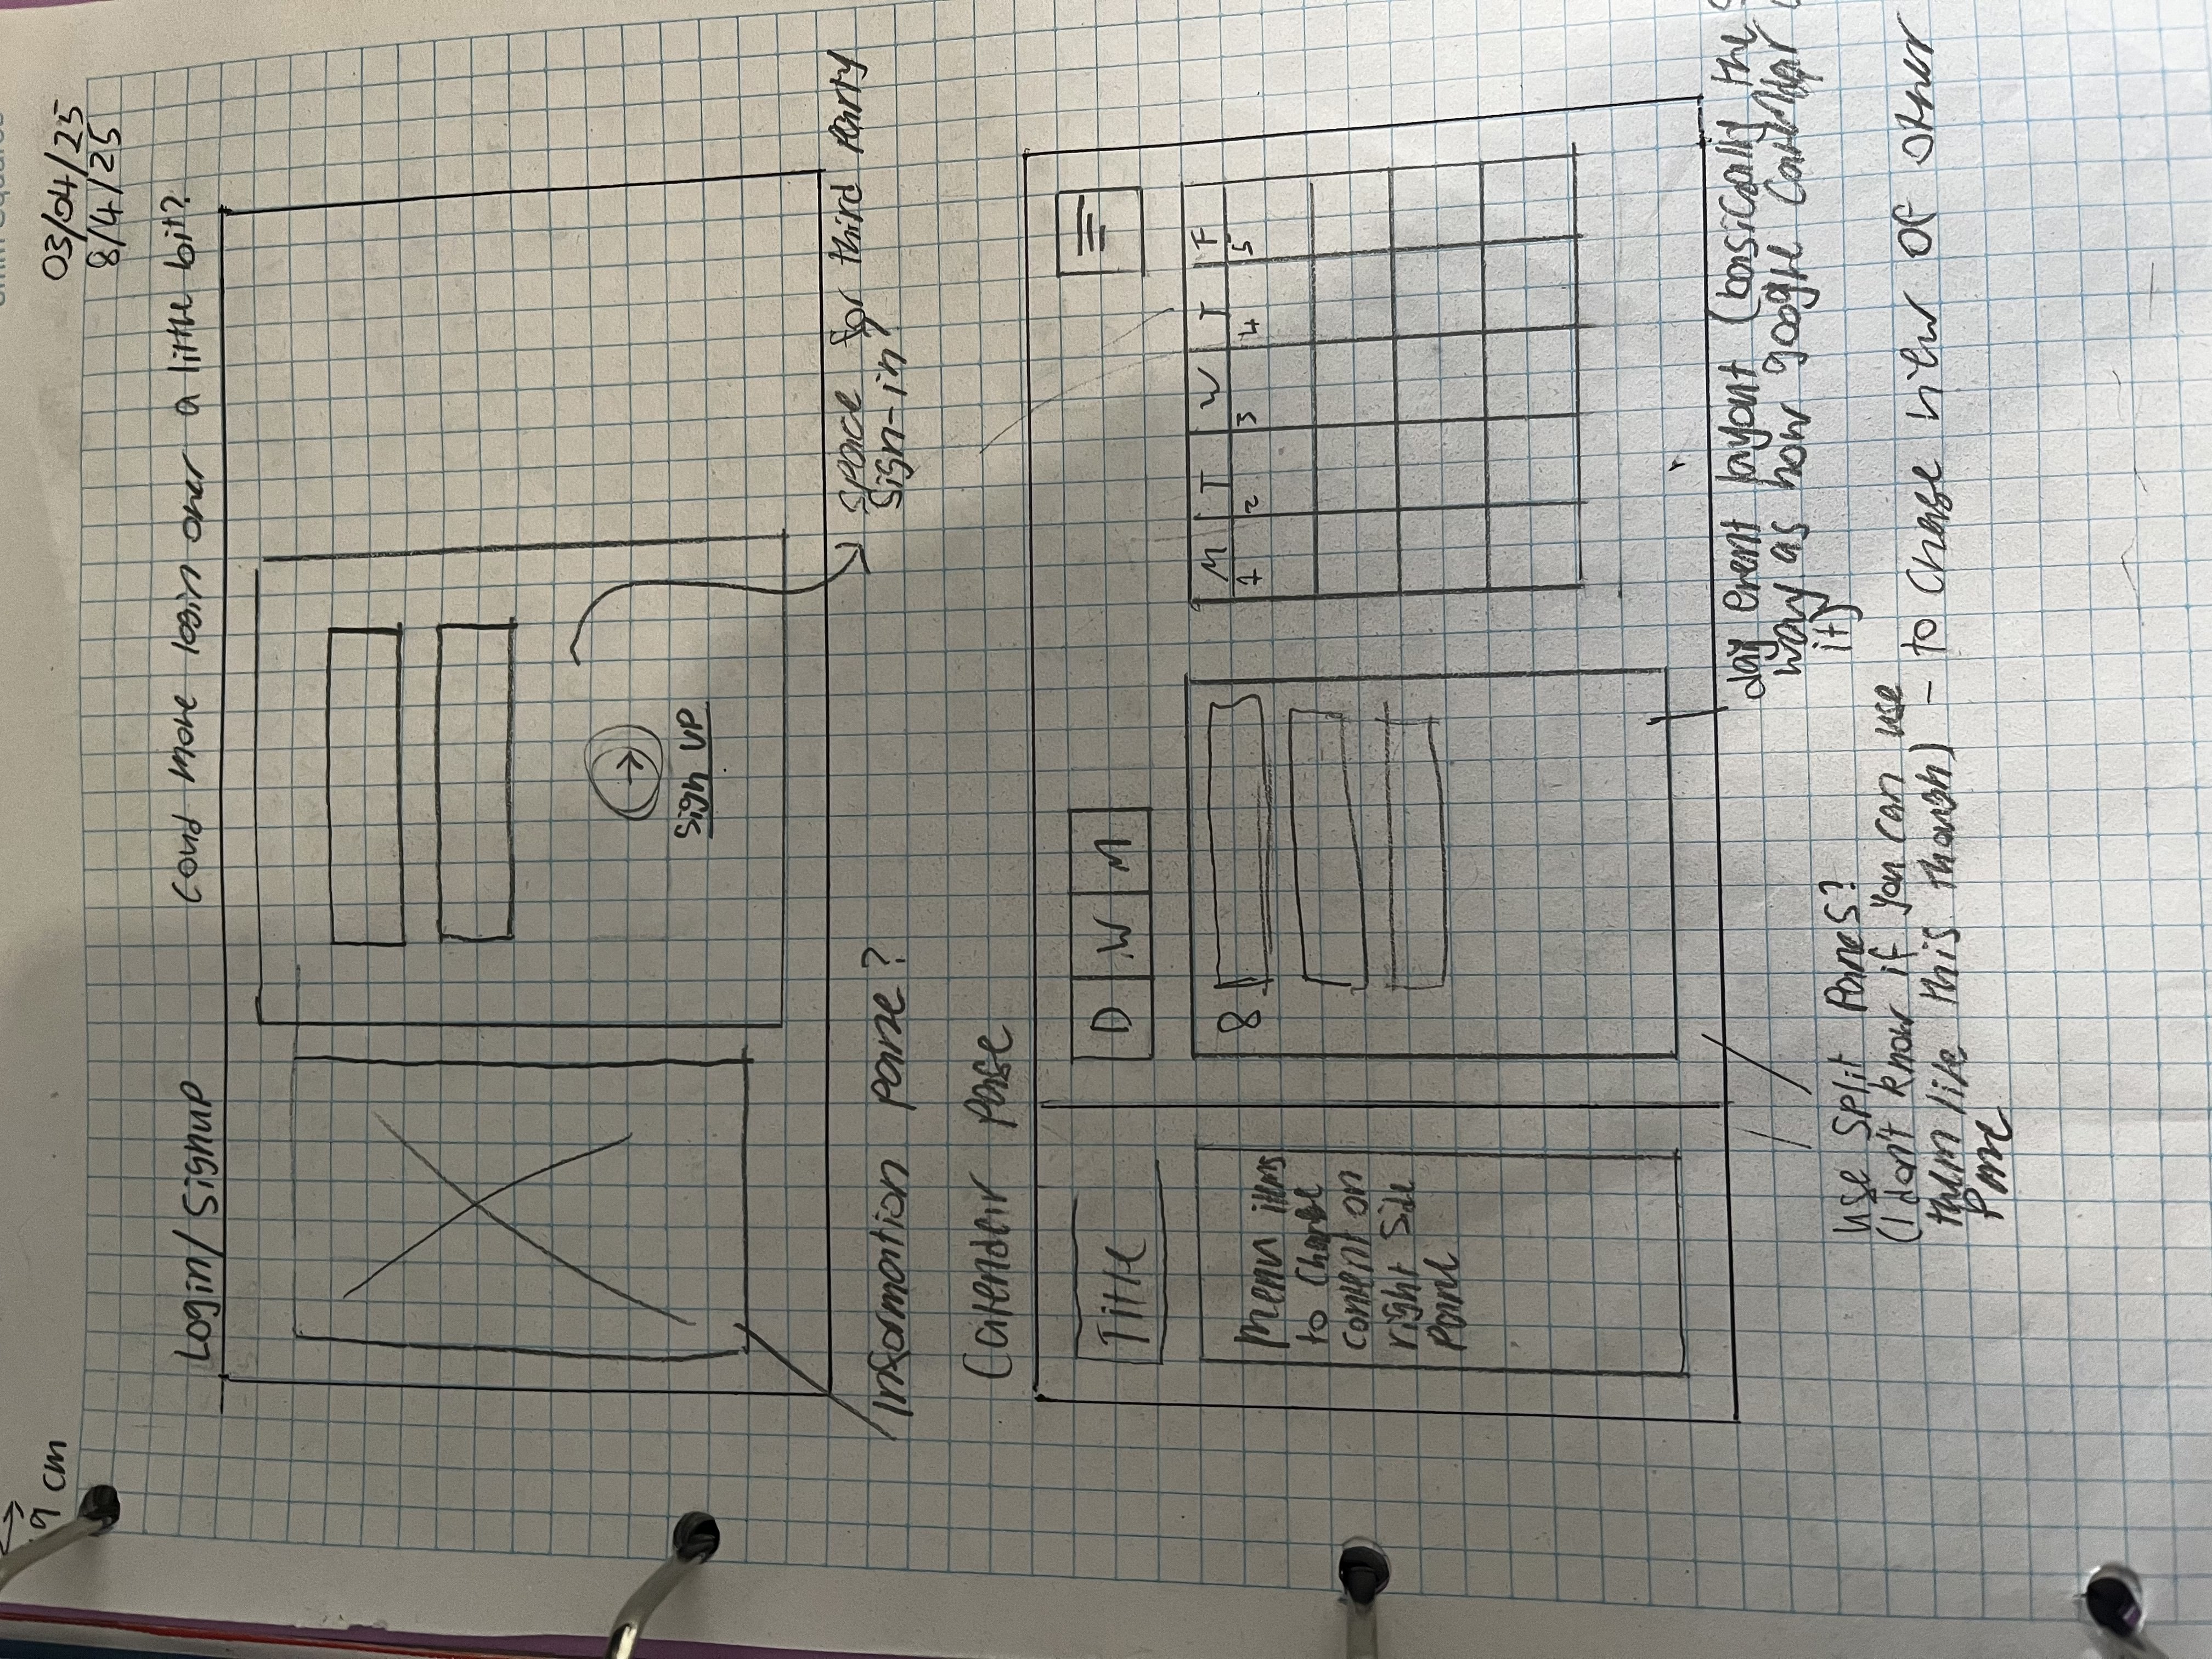 9 cm
03/04/25
8/4/25
Login/Signup
Coud move login over a little bit?
Sign UP
Space for third Party
Sign-in?
Information pane?
Calendar Page
Title
D W M
Menu items
to Change
content on
right Side
Panel
8
M T W T F
1 2 3 4 5
day event layout (basically the
way as how google Calendar
it)
use split Panes?
(I don't know if you can use
them like this though) - to change view of other
Pane